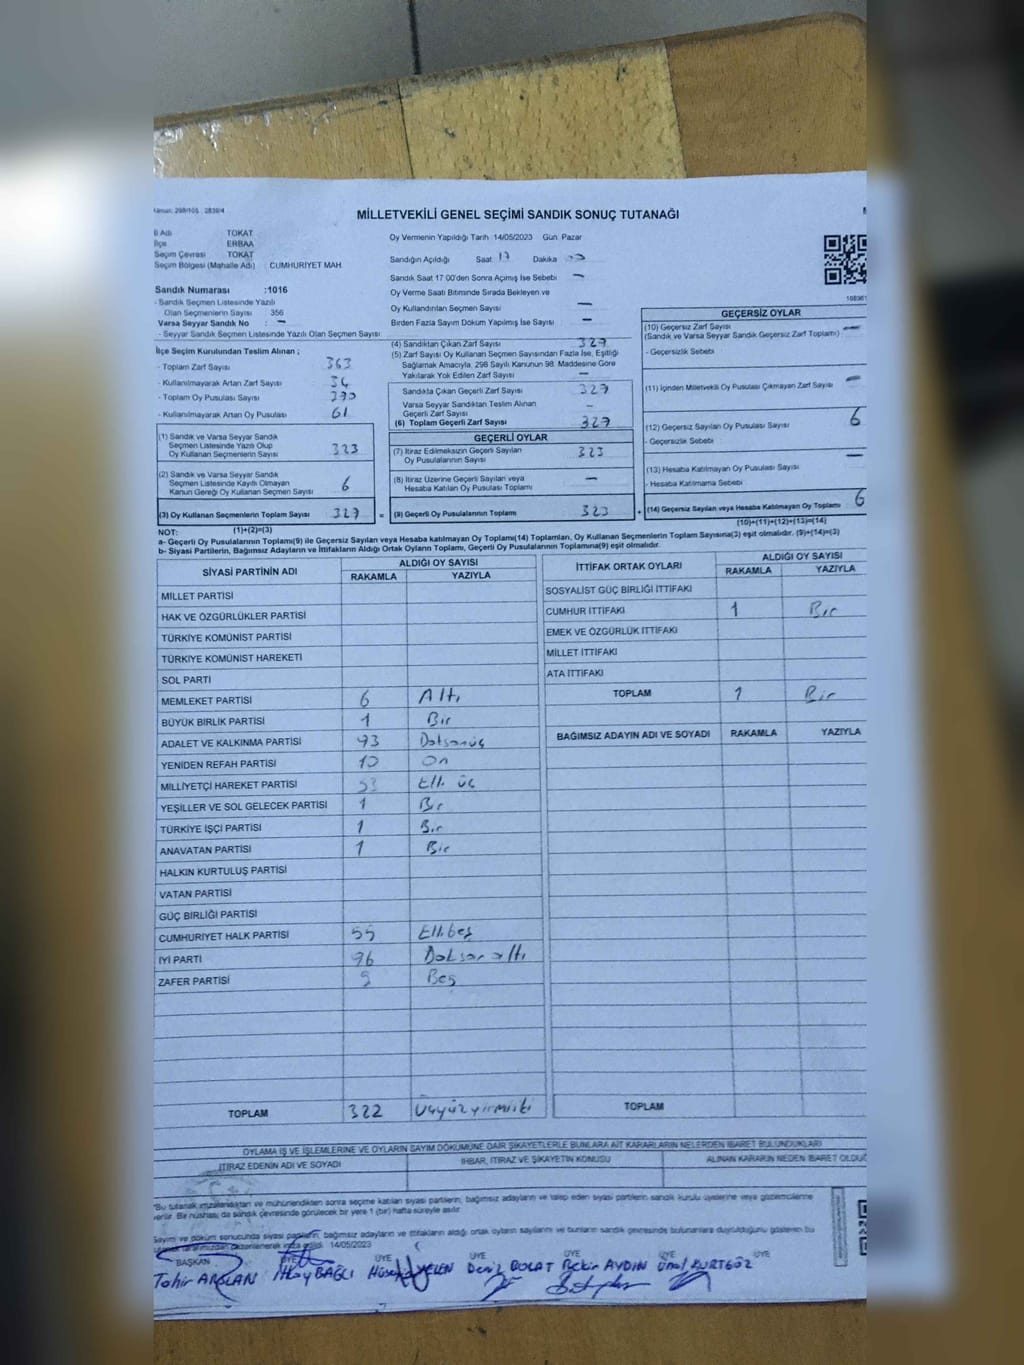 MİLLETVEKİLİ GENEL SEÇİMİ SANDIK SONUÇ TUTANAĞI
İl Adı TOKAT
İlçe ERBAA
Seçim Çevresi TOKAT
Seçim Bölgesi (Mahalle Adı) CUMHURİYET MAH.
Sandık Numarası :1016
- Sandık Seçmen Listesinde Yazılı
Olan Seçmenlerin Sayısı 356
Varsa Seyyar Sandık No : -
- Seyyar Sandık Seçmen Listesinde Yazılı Olan Seçmen Sayısı
Oy Vermenin Yapıldığı Tarih 14/05/2023 Gün Pazar
Sandığın Açıldığı Saat 17 Dakika
Sandık Saat 17.00'den Sonra Açımış İse Sebebi -
Oy Verme Saati Bitiminde Sırada Bekleyen ve
Oy Kullandırılan Seçmen Sayısı -
Birden Fazla Sayım Döküm Yapılmış İse Sayısı -
İlçe Seçim Kurulundan Teslim Alınan ;
- Toplam Zarf Sayısı 363
- Kullanılmayarak Artan Zarf Sayısı 34
- Toplam Oy Pusulası Sayısı 390
- Kullanılmayarak Artan Oy Pusulası 61
(1) Sandık ve Varsa Seyyar Sandık
Seçmen Listesinde Yazılı Olup
Oy Kullanan Seçmenlerin Sayısı 323
(2) Sandık ve Varsa Seyyar Sandık
Seçmen Listesinde Kaydı Olmayan
Kanun Gereği Oy Kullanan Seçmen Sayısı 6
(3) Oy Kullanan Seçmenlerin Toplam Sayısı 327 =
(1)+(2)=(3)
(4) Sandıktan Çıkan Zarf Sayısı 327
(5) Zarf Sayısı Oy Kullanan Seçmen Sayısından Fazla İse, Eşitliği
Sağlamak Amacıyla, 298 Sayılı Kanunun 98. Maddesine Göre
Yakılarak Yok Edilen Zarf Sayısı -
Sandıkta Çıkan Geçerli Zarf Sayısı 327
Varsa Seyyar Sandıktan Teslim Alınan
Geçerli Zarf Sayısı -
(6) Toplam Geçerli Zarf Sayısı 327
GEÇERLİ OYLAR
(7) İtiraz Edilmeksizin Geçerli Sayılan
Oy Pusulalarının Sayısı 323
(8) İtiraz Üzerine Geçerli Sayılan veya
Hesaba Katılan Oy Pusulası Toplamı -
(9) Geçerli Oy Pusulalarının Toplamı 323 +
GEÇERSİZ OYLAR
(10) Geçersiz Zarf Sayısı -
(Sandık ve Varsa Seyyar Sandık Geçersiz Zarf Toplamı)
- Geçersizlik Sebebi
(11) İçinden Milletvekili Oy Pusulası Çıkmayan Zarf Sayısı -
(12) Geçersiz Sayılan Oy Pusulası Sayısı 6
- Geçersizlik Sebebi
(13) Hesaba Katılmayan Oy Pusulası Sayısı -
- Hesaba Katılmama Sebebi
(14) Geçersiz Sayılan veya Hesaba Katılmayan Oy Toplamı 6
(10)+(11)+(12)+(13)=(14)
NOT:
a- Geçerli Oy Pusulalarının Toplamı(9) ile Geçersiz Sayılan veya Hesaba katılmayan Oy Toplamı(14) Toplamları, Oy Kullanan Seçmenlerin Toplam Sayısına(3) eşit olmalıdır. (9)+(14)=(3)
b- Siyasi Partilerin, Bağımsız Adayların ve İttifakların Aldığı Ortak Oyların Toplamı, Geçerli Oy Pusulalarının Toplamına(9) eşit olmalıdır.
SİYASİ PARTİNİN ADI ALDIĞI OY SAYISI
RAKAMLA YAZIYLA
MİLLET PARTİSİ
HAK VE ÖZGÜRLÜKLER PARTİSİ
TÜRKİYE KOMÜNİST PARTİSİ
TÜRKİYE KOMÜNİST HAREKETİ
SOL PARTİ
MEMLEKET PARTİSİ 6 Altı
BÜYÜK BİRLİK PARTİSİ 1 Bir
ADALET VE KALKINMA PARTİSİ 93 Doksanüç
YENİDEN REFAH PARTİSİ 10 On
MİLLİYETÇİ HAREKET PARTİSİ 53 Elli üç
YEŞİLLER VE SOL GELECEK PARTİSİ 1 Bir
TÜRKİYE İŞÇİ PARTİSİ 1 Bir
ANAVATAN PARTİSİ 1 Bir
HALKIN KURTULUŞ PARTİSİ
VATAN PARTİSİ
GÜÇ BİRLİĞİ PARTİSİ
CUMHURİYET HALK PARTİSİ 55 Ellibeş
İYİ PARTİ 96 Doksan altı
ZAFER PARTİSİ 5 Beş
TOPLAM 322 Üçyüzyirmiiki
İTTİFAK ORTAK OYLARI ALDIĞI OY SAYISI
RAKAMLA YAZIYLA
SOSYALİST GÜÇ BİRLİĞİ İTTİFAKI
CUMHUR İTTİFAKI 1 Bir
EMEK VE ÖZGÜRLÜK İTTİFAKI
MİLLET İTTİFAKI
ATA İTTİFAKI
TOPLAM 1 Bir
BAĞIMSIZ ADAYIN ADI VE SOYADI RAKAMLA YAZIYLA
TOPLAM
OYLAMA İŞ VE İŞLEMLERİNE VE OYLARIN SAYIM DÖKÜMÜNE DAİR ŞİKAYETLERLE BUNLARA AİT KARARLARIN NELERDEN İBARET BULUNDUKLARI
İTİRAZ EDENİN ADI VE SOYADI İHBAR, İTİRAZ VE ŞİKAYETİN KONUSU ALINAN KARARIN NEDEN İBARET OLDUĞ
*Bu tutanak imzalandıktan ve mühürlendikten sonra seçime katılan siyasi partilerin, bağımsız adayların ve talep eden siyasi partilerin sandık kurulu üyelerine veya gözlemcilerine
verilir. Bir nüshası da sandık çevresinde görülecek bir yere 1 (bir) hafta süreyle asılır.
Sayım ve döküm sonucunda siyasi partilerin, bağımsız adayların ve ittifakların aldığı ortak oyların sayılarını ve bunların sandık çevresinde bulunanlara duyurulduğunu gösteren bu
14/05/2023
BAŞKAN ÜYE ÜYE ÜYE ÜYE ÜYE ÜYE
Tahir ARSLAN BAĞLI Deniz BOLAT Bekir AYDIN Ünal KURTGÖZ